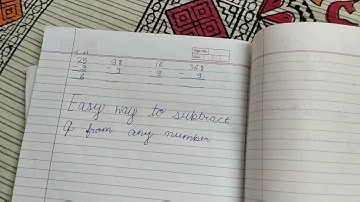 25 98 16 368
- 9 - 9 - 9 - 9
6
Easy way to subtract
9 from any number